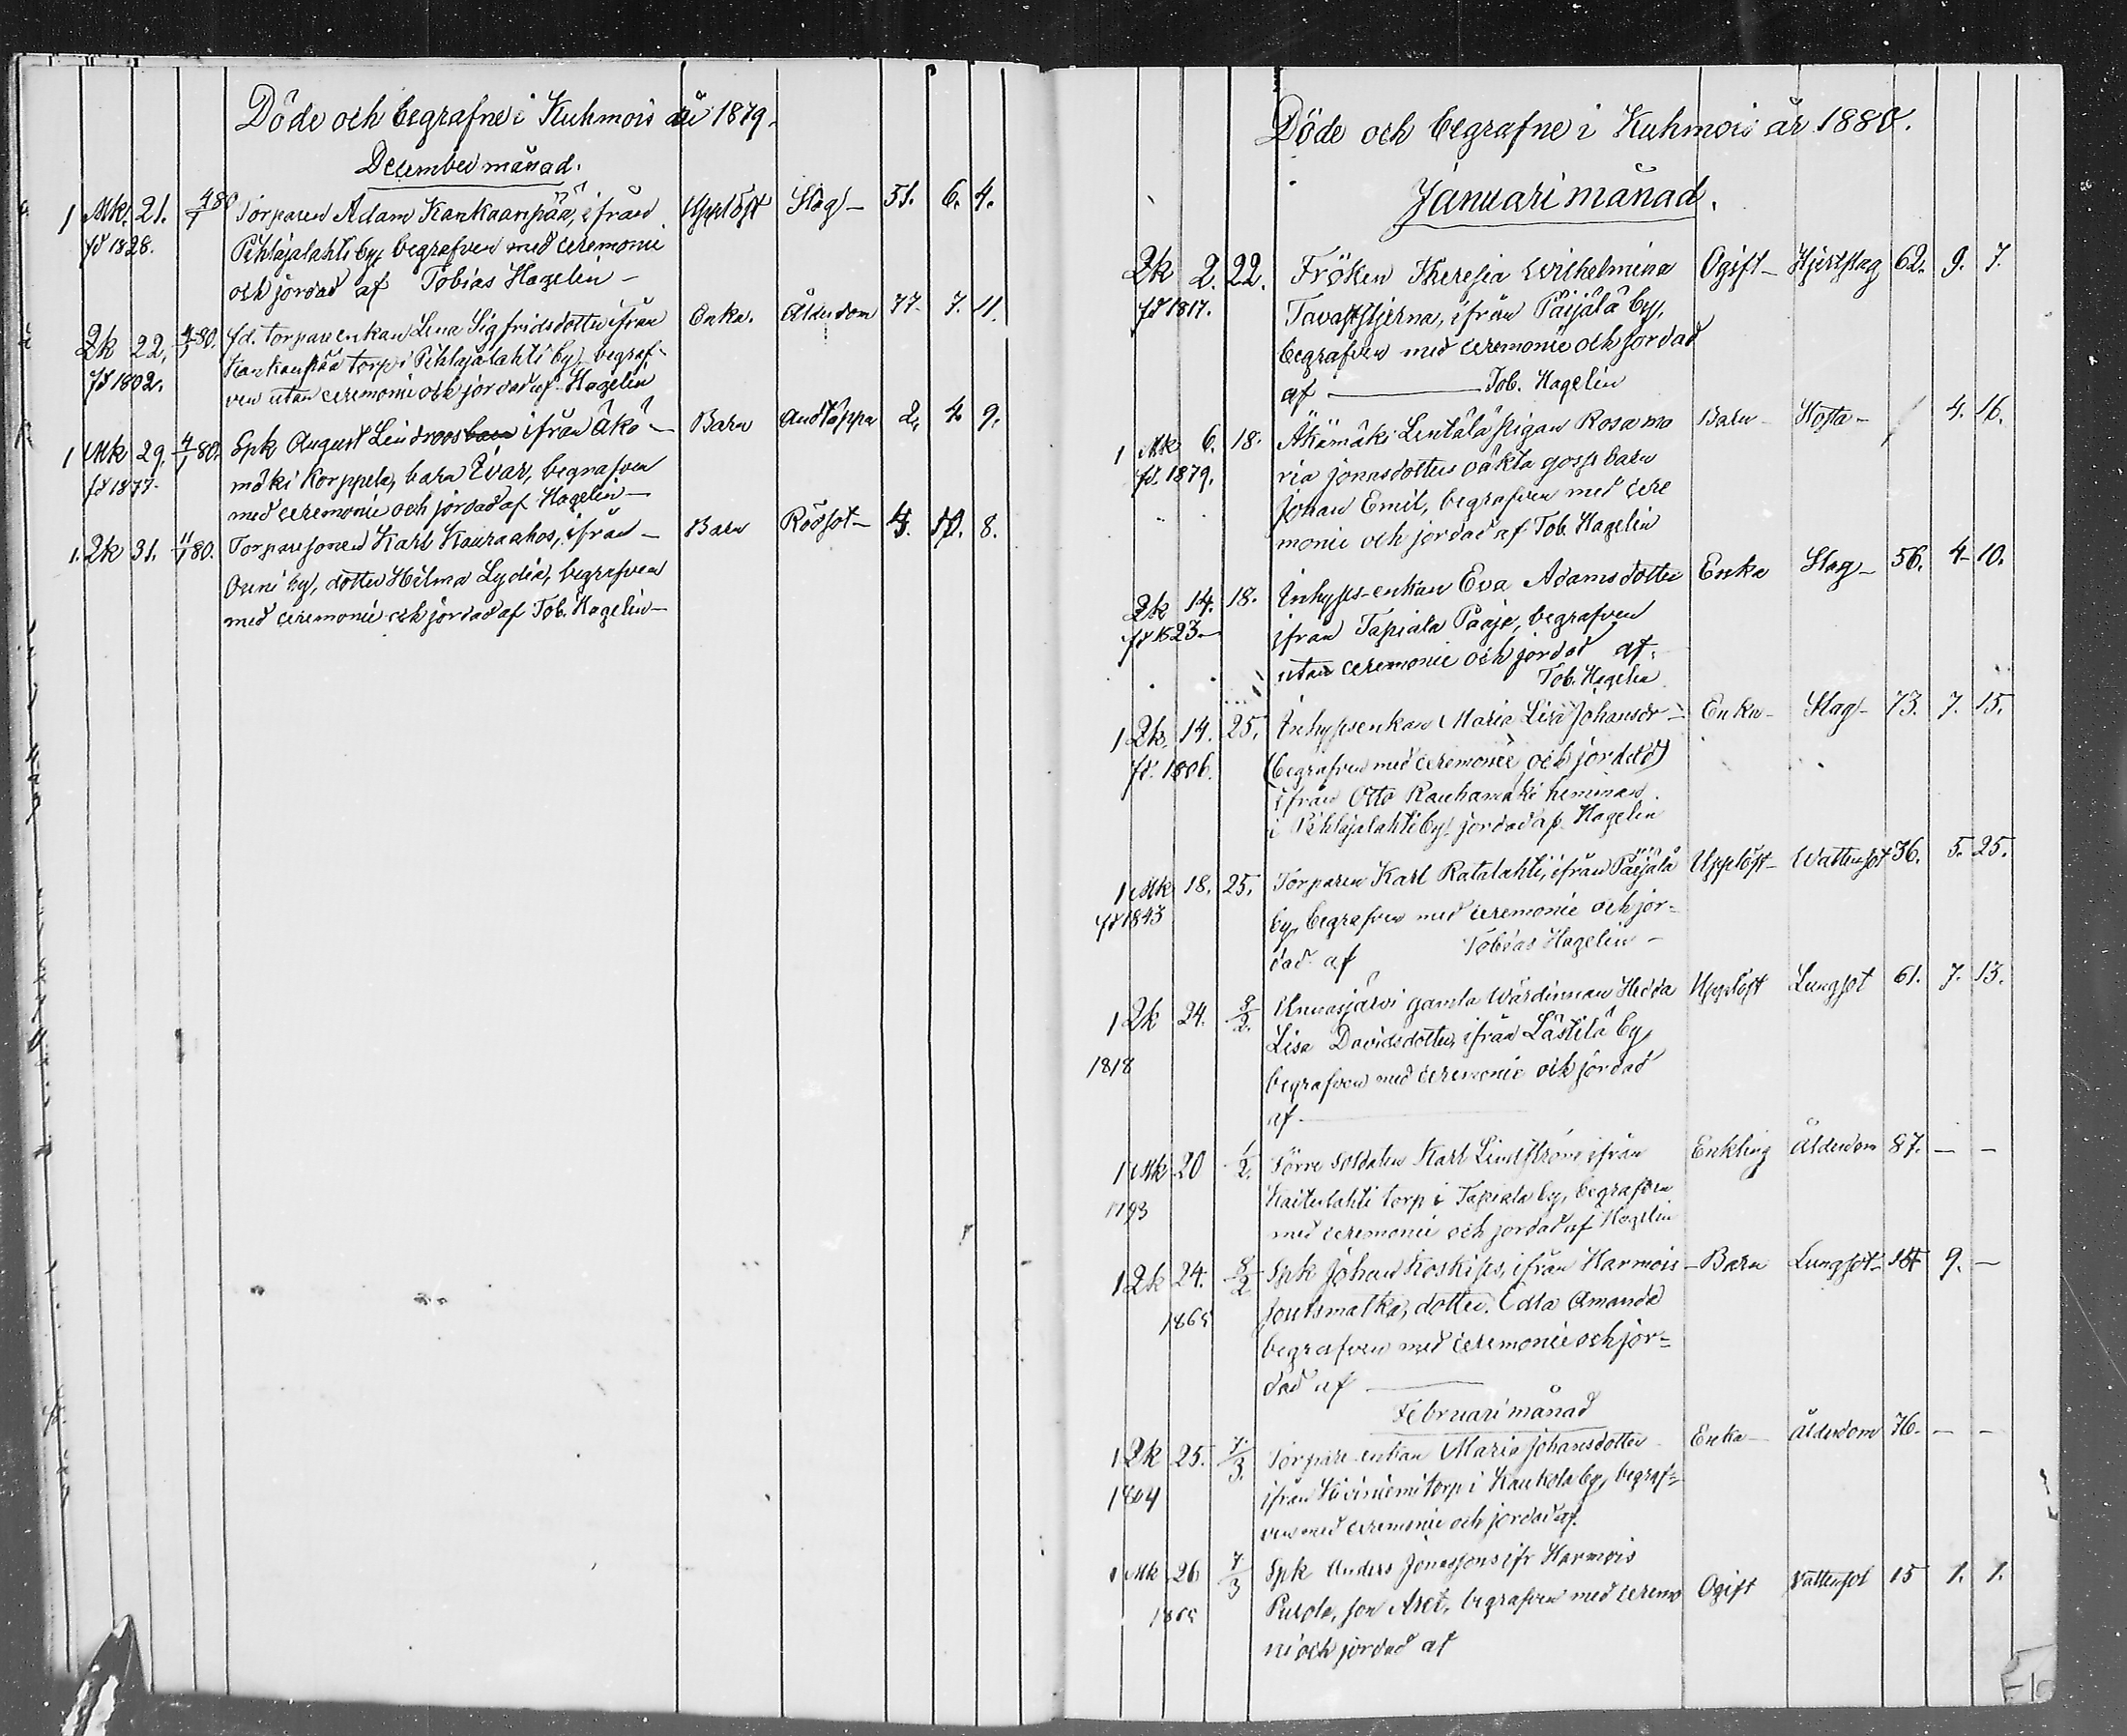 Döde och begrafne i Kuhmois år 1879.
December månad.
1 Mk. 21. 4/1 80 Torparen Adam Kankaanpää, ifrån Upplöst Slag – 51. 6. 4.
fd 1828. Pihlajalahti by, begrafven med ceremonie
och jordad af Tobias Hagelin –
2k 22. 4/1 80. fd. torpareenkan Lena Sigfridsdotter ifrån Enka. Ålderdom 77. 7. 11.
fd 1802. Kankanpää torp i Pihlajalahti by, begraf-
ven utan ceremonie och jordad af Hagelin
1 Mk 29. 4/1 80. Spk August Lindroos barn ifrån Äkö – Barn Andtäppa 2. 4. 9.
fd 1877. mäki Korppela, barn Evar, begrafven
med ceremonie och jordad af Hagelin –
1. 2k 31. 11/1 80. Torparesonen Karl Kauraahos, ifrån – Barn Rödsot – 8.
by, dotter Hilma Lydia, begrafven
med ceremonie och jordad af Tob. Hagelin –
Döde och begrafne i Kuhmois år 1880.
Januari månad.
2k 2. 22. Fröken Theresia Wilhelmina Ogift – Hjertslag 62. 9. 7.
fd 1817. Tavaststjerna, ifrån Päijälä by,
begrafven med ceremonie och jordad
af ——— Tob. Hagelin
1 Mk 6. 18. Äkämäki Lintälä pigan Rosa ma Barn – Hosta – 4. 16.
fd. 1879. ria Jonasdotters oäkta gosse barn
Johan Emil, begrafven med cere
monie och jordad af Tob. Hagelin
2k 14. 18. Inhyses-enkan Eva Adamsdotter Enka Slag – 56. 4 – 10.
fd 1823 – ifrån Tapiala Paaje, begrafven
utan ceremonie och jordad af.
Tob. Hagelin
1 2k 14. 25. Inhysesenkan Maria Lisa Johansdr – Enka – Slag – 73. 7. 15.
fd. 1806. (begrafven med ceremonie och jordad)
ifrån Otto Rauhamäki hemman
i Pihlajalahti by, jordad af Hagelin
1 Mk 18. 25. Torparen Karl Ratalahti, ifrån Päijälä Upplöst – Wattensot 36. 5. 25.
fd 1843 by, begrafven med ceremonie och jor-
dad af Tobias Hagelin –
1 2k 24. 8/2. Unnasjärvi gamla Wärdinnan Hedda Upplöst Lungsot 61. 7. 13.
1818 Lisa Davidsdotter, ifrån Lästilä by
begrafven med ceremonie och jordad
af –
1 Mk 20 1/2. Förre Soldaten Karl Lindström ifrån Enkling Ålderdom 87. – –
1793 Haiterlahti torp i Tapiala by, begrafven
med ceremonie och jordad af Hagelin
1 2k 24. 8/2 Spk Johan Koskises, ifrån Harmois – Barn Lungsot – 14 9. –
1865 Joutsmatka, dotter. Edla Amanda
begrafven med ceremonie och jor-
dad af ———
Februari månad
1 2k 25. 7/3. Torpare-enkan Maria Johansdotter Enka – Ålderdom 76. – –
1804 ifrån torp i Kaukola by, begraf-
ven med ceremonie och jordad af.
1 Mk 26 7/3 Spk Anders Jonassons ifr Harmois
1865 Puzola, son Axel, begrafven med ceremo Ogift Vattensot 15 1. 1.
ni och jordad af